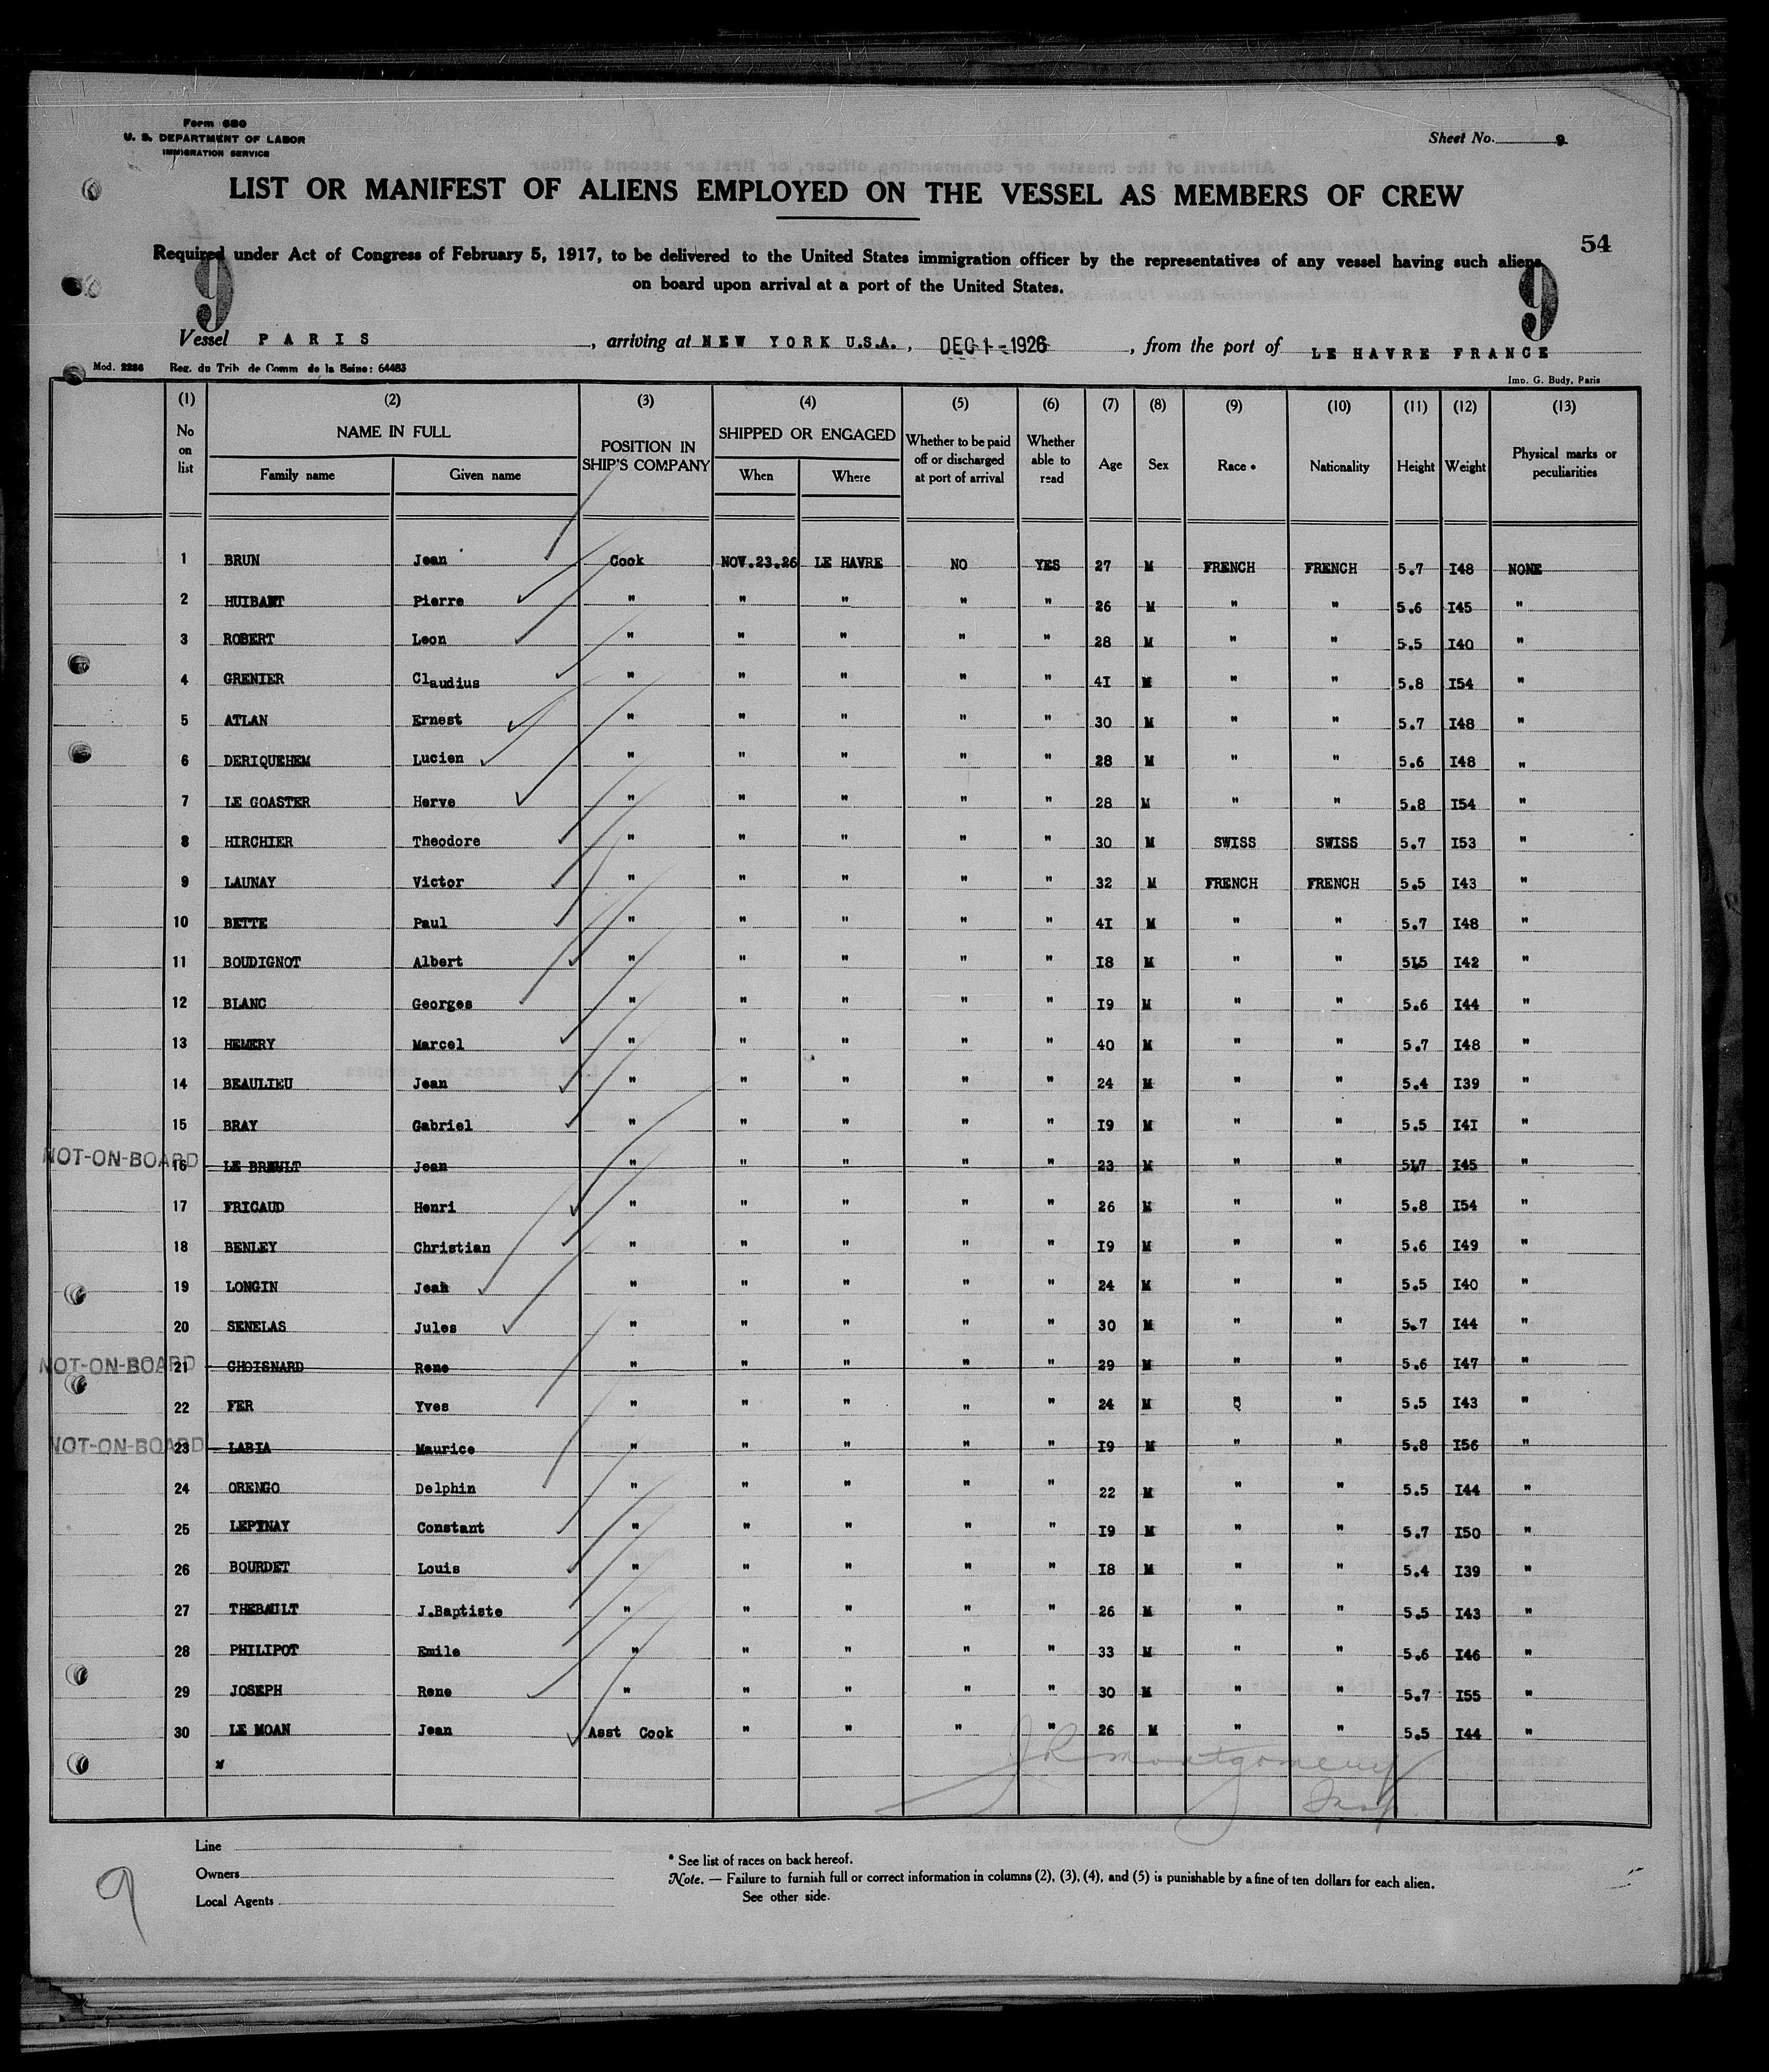 Form 680
U. S. DEPARTMENT OF LABOR
IMMIGRATION SERVICE
Sheet No. 9
LIST OR MANIFEST OF ALIENS EMPLOYED ON THE VESSEL AS MEMBERS OF CREW
54
Required under Act of Congress of February 5, 1917, to be delivered to the United States immigration officer by the representatives of any vessel having such aliens
on board upon arrival at a port of the United States.
9 9
Vessel PARIS, arriving at NEW YORK U.S.A., DEC 1-1926, from the port of LE HAVRE FRANCE
Mod. 2286 Reg. du Trib de Comm de la Seine: 64483 Imp. G. Budy, Paris
(1) (2) (3) (4) (5) (6) (7) (8) (9) (10) (11) (12) (13)
No on list NAME IN FULL POSITION IN SHIP'S COMPANY SHIPPED OR ENGAGED Whether to be paid off or discharged at port of arrival Whether able to read Age Sex Race * Nationality Height Weight Physical marks or peculiarities
Family name Given name When Where
1 BRUN Jean Cook NOV.23.26 LE HAVRE NO YES 27 M FRENCH FRENCH 5.7 I48 NONE
2 HUIBANT Pierre " " " " " 26 M " " 5.6 I45 "
3 ROBERT Leon " " " " " 28 M " " 5.5 I40 "
4 GRENIER Claudius " " " " " 4I M " " 5.8 I54 "
5 ATLAN Ernest " " " " " 30 M " " 5.7 I48 "
6 DERIQUEHEM Lucien " " " " " 28 M " " 5.6 I48 "
7 LE GOASTER Herve " " " " " 28 M " " 5.8 I54 "
8 HIRCHIER Theodore " " " " " 30 M SWISS SWISS 5.7 I53 "
9 LAUNAY Victor " " " " " 32 M FRENCH FRENCH 5.5 I43 "
10 BETTE Paul " " " " " 4I M " " 5.7 I48 "
11 BOUDIGNOT Albert " " " " " I8 M " " 5.5 I42 "
12 BLANC Georges " " " " " I9 M " " 5.6 I44 "
13 HEMERY Marcel " " " " " 40 M " " 5.7 I48 "
14 BEAULIEU Jean " " " " " 24 M " " 5.4 I39 "
15 BRAY Gabriel " " " " " I9 M " " 5.5 I4I "
NOT-ON-BOARD 16 LE BREULT Jean " " " " " 23 M " " 5.7 I45 "
17 FRICAUD Henri " " " " " 26 M " " 5.8 I54 "
18 BENLEY Christian " " " " " I9 M " " 5.6 I49 "
19 LONGIN Jean " " " " " 24 M " " 5.5 I40 "
20 SENELAS Jules " " " " " 30 M " " 5.7 I44 "
NOT-ON-BOARD 21 CHOISNARD Rene " " " " " 29 M " " 5.6 I47 "
22 FER Yves " " " " " 24 M " " 5.5 I43 "
NOT-ON-BOARD 23 LABIA Maurice " " " " " I9 M " " 5.8 I56 "
24 ORENGO Delphin " " " " " 22 M " " 5.5 I44 "
25 LEPINAY Constant " " " " " I9 M " " 5.7 I50 "
26 BOURDET Louis " " " " " I8 M " " 5.4 I39 "
27 THEBAULT J.Baptiste " " " " " 26 M " " 5.5 I43 "
28 PHILIPOT Emile " " " " " 33 M " " 5.6 I46 "
29 JOSEPH Rene " " " " " 30 M " " 5.7 I55 "
30 LE MOAN Jean Asst Cook " " " " 26 M " " 5.5 I44 "
J R Montgomery
Insp.
Line
Owners
Local Agents
* See list of races on back hereof.
Note. — Failure to furnish full or correct information in columns (2), (3), (4), and (5) is punishable by a fine of ten dollars for each alien.
See other side.
9